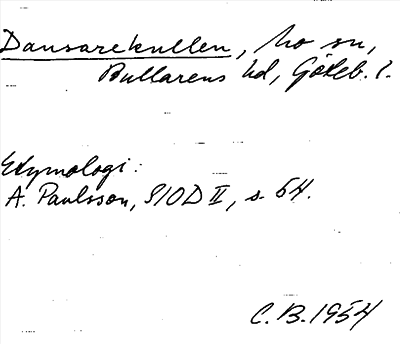 Dansarekullen, Mo sn,
Bullarens hd, Göteb. l.
Etymologi:
A. Paulsson, SIOD II, s. 64.
C. B. 1954